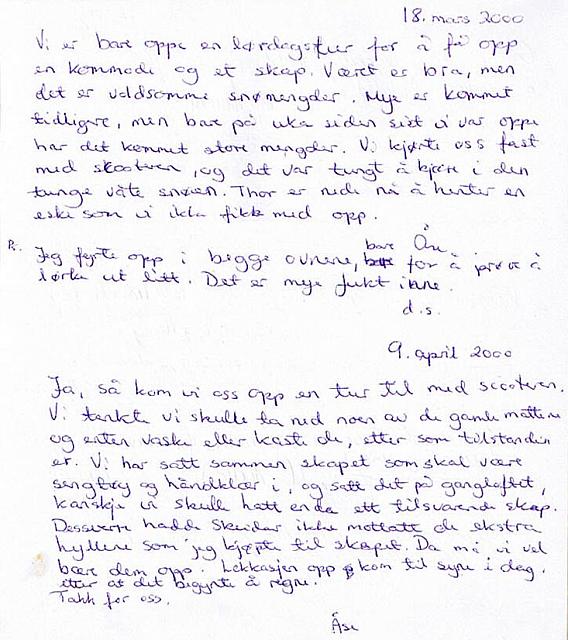 18. mars 2000
Vi er bare oppe en lørdagstur for å få opp
en kommode og et skap. Været er bra, men
det er voldsomme snømengder. Mye er kommet
tidligere, men bare på uka siden sist vi var oppe
har det kommet store mengder. Vi kjørte oss fast
med scooteren, og det var tungt å kjøre i den
tunge våte snøen. Thor er nede nå å henter en
eske som vi ikke fikk med opp.
Åse
Ps. Jeg fyrte opp i begge ovnene, bare for å prøve å
tørke ut litt. Det er mye fukt inne.
d.s.
9. april 2000
Ja, så kom vi oss opp en tur til med scooteren.
Vi tenkte vi skulle ta ned noen av de gamle mattene
og enten vaske eller kaste de, etter som tilstanden
er. Vi har satt sammen skapet som skal være
sengtøy og håndklær i, og satt det på gangloftet,
kanskje vi skulle hatt enda ett tilsvarende skap.
Dessverre hadde Skeidar ikke mottatt de ekstra
hyllene som jeg kjøpte til skapet. Da må vi vel
bære dem opp. Lekkasjen oppe kom til syne i dag,
etter at det begynte å regne.
Takk for oss.
Åse